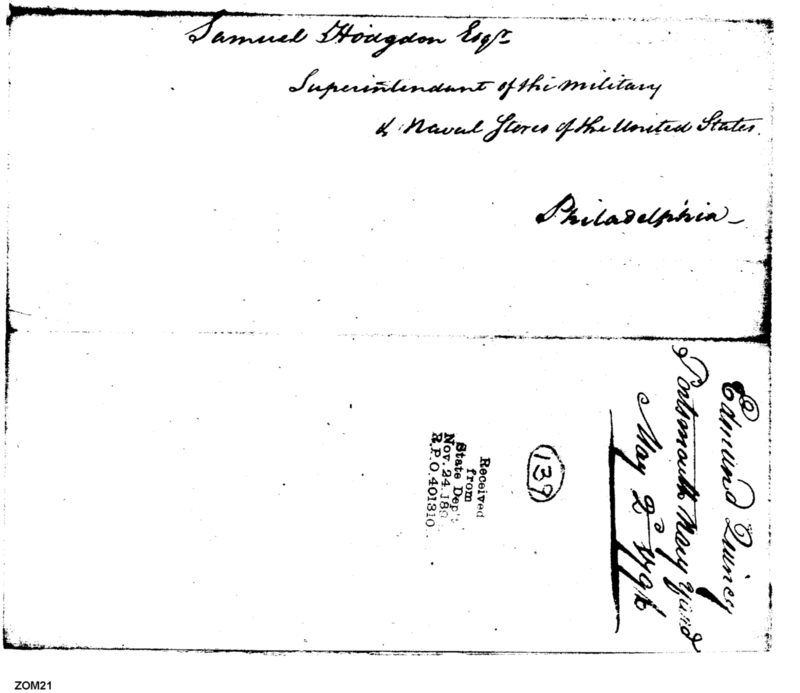 Samuel Hodgdon Esqr
Superintendant of the military
& Naval Stores of the United States.
Philadelphia
Edmund Quincy
Portsmouth Navy Yard
May 2d
139
Received
from
State Dep't
Nov. 24, 189
R.P.O. 401310.
ZOM21